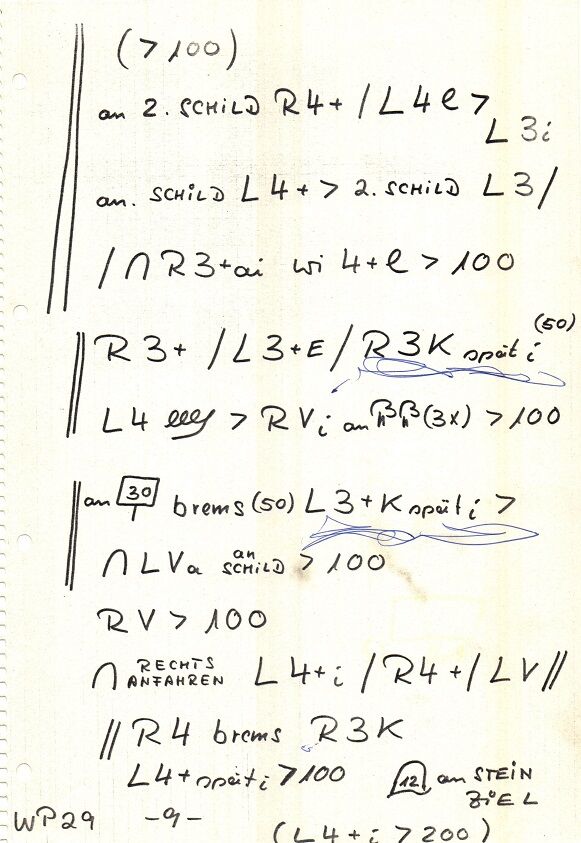 (>100)
an 2. SCHILD R4+ / L4e >
L3i
an. SCHILD L4+ > 2. SCHILD L3/
/ ∩ R3+ai wi 4+e > 100
R3+ / L3+E / R3K spät i (50)
L4 > RVi an (3x) > 100
an 30 brems (50) L3+K spät i >
∩ LVa an SCHILD > 100
RV > 100
∩ RECHTS ANFAHREN L4+i / R4+ / LV //
// R4 brems R3K
L4+ spät i > 100 12 an STEIN
ZIEL
WP29 -9- (L4+i > 200)